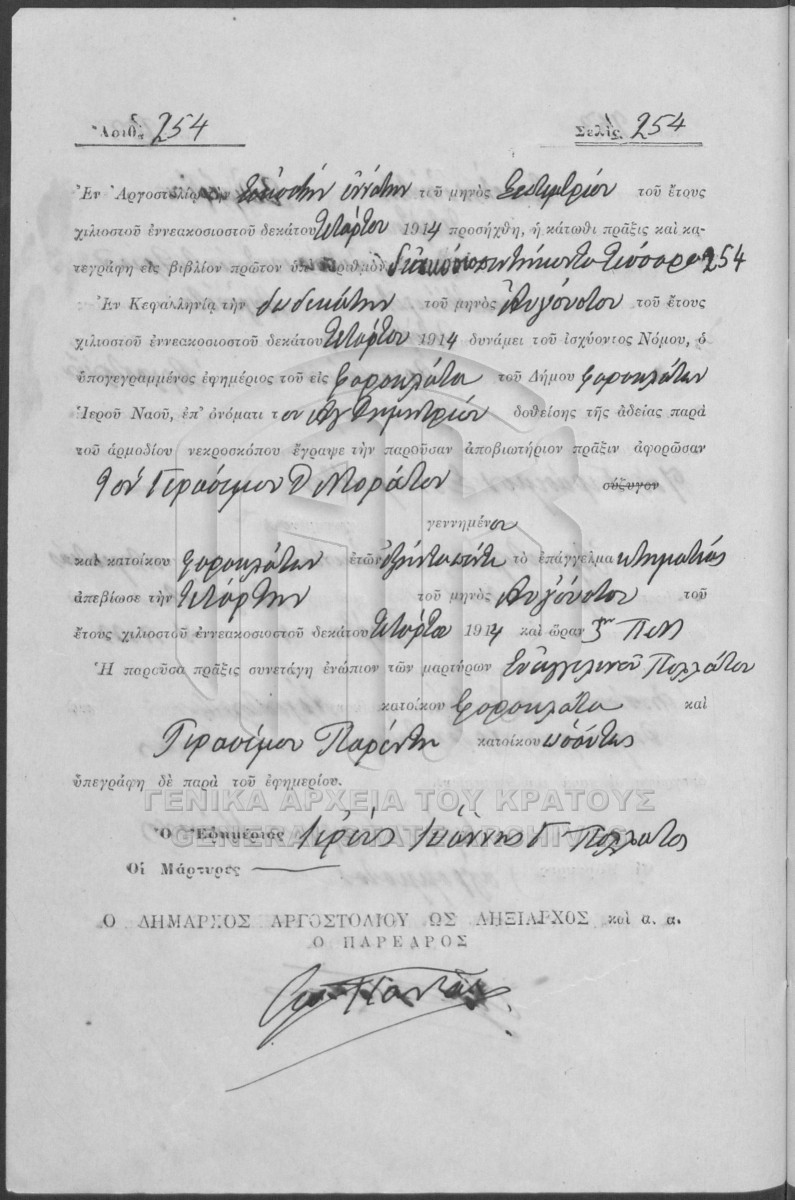 Ἀριθ. 254
Σελὶς 254
Ἐν Ἀργοστολίῳ τὴν εἰκοστήν ἐννάτην τοῦ μηνὸς Σεπτεμβρίου τοῦ ἔτους
χιλιοστοῦ ἐννεακοσιοστοῦ δεκάτου τετάρτου 1914 προσήχθη, ἡ κάτωθι πρᾶξις καὶ κα-
τεγράφη εἰς βιβλίον πρῶτον ὑπ' ἀριθμὸν διακόσια πεντήκοντα τέσσαρα 254
Ἐν Κεφαλληνίᾳ τὴν δωδεκάτην τοῦ μηνὸς Αὐγούστου τοῦ ἔτους
χιλιοστοῦ ἐννεακοσιοστοῦ δεκάτου τετάρτου 1914 δυνάμει τοῦ ἰσχύοντος Νόμου, ὁ
ὑπογεγραμμένος ἐφημέριος τοῦ εἰς Φαρακλάτα τοῦ Δήμου Φαρακλάτων
Ἱεροῦ Ναοῦ, ἐπ' ὀνόματι τοῦ Ἁγ Δημητρίου δοθείσης τῆς ἀδείας παρὰ
τοῦ ἁρμοδίου νεκροσκόπου ἔγραψε τὴν παροῦσαν ἀποβιωτήριον πρᾶξιν ἀφορῶσαν
τόν Γεράσιμον Δ Μοράτον σύζυγον
γεννημένον
καὶ κατοίκου Φαρακλάτων ἐτῶν ἑξήντα πέντε τὸ ἐπάγγελμα κτηματίας
ἀπεβίωσε τὴν τετάρτην τοῦ μηνὸς Αὐγούστου τοῦ
ἔτους χιλιοστοῦ ἐννεακοσιοστοῦ δεκάτου τετάρτου 1914 καὶ ὥραν
Ἡ παροῦσα πρᾶξις συνετάγη ἐνώπιον τῶν μαρτύρων Εὐαγγελινοῦ Πολλάτου
κατοίκου Φαρακλάτα καὶ
Γερασίμου Παρέντη κατοίκου ὡσαύτως
ὑπεγράφη δὲ παρὰ τοῦ ἐφημερίου.
ΓΕΝΙΚΑ ΑΡΧΕΙΑ ΤΟΥ ΚΡΑΤΟΥΣ
GENERAL STATE ARCHIVES
Ὁ Ἐφημέριος Ἱερεύς Ἰωάννης Γ Πολλάτος
Οἱ Μάρτυρες
Ο ΔΗΜΑΡΧΟΣ ΑΡΓΟΣΤΟΛΙΟΥ ΩΣ ΛΗΞΙΑΡΧΟΣ καὶ α. α.
Ο ΠΑΡΕΔΡΟΣ